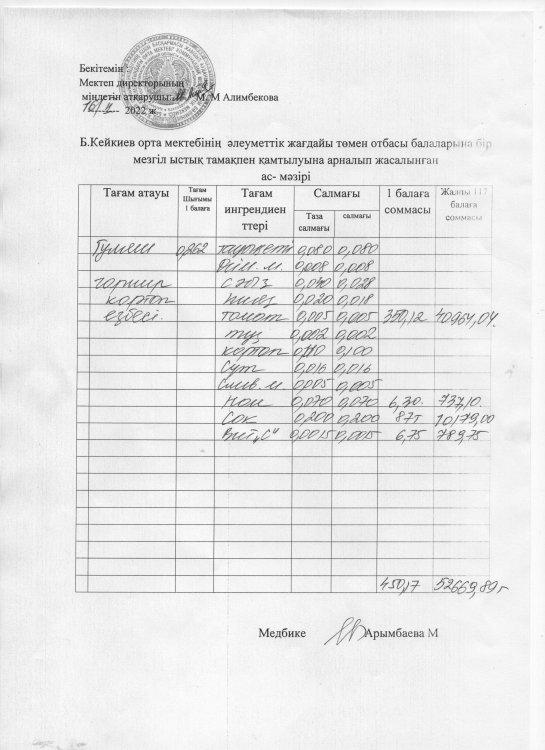 Бекітемін
Мектеп директорының
міндетін атқарушы: М. М Алимбекова
16/ 2022 ж.
Б.Кейкиев орта мектебінің әлеуметтік жағдайы төмен отбасы балаларына бір
мезгіл ыстық тамақпен қамтылуына арналып жасалынған
ас- мәзірі
Тағам атауы Тағам Шығымы 1 балаға Тағам ингрендиен ттері Салмағы 1 балаға соммасы Жалпы 117 балаға соммасы
Таза салмағы салмағы
Гуляш 0,262 0,080 0,080
Өсім. м. 0,008 0,008
гарнир сәбіз 0,040 0,028
картоп пияз 0,020 0,018
езбесі. томат 0,005 0,005 350,12 40964,04.
тұз 0,002 0,002
картоп 0,110 0,100
Сүт 0,016 0,016
Слив. м 0,005 0,005
Нан 0,070 0,070 6,30. 737,10
Сок 0,200 0,200 87т 10179,00
Вит „С" 0,0015 0,005 6,75 789,75
450,17 52669,89т
Медбике Арымбаева М